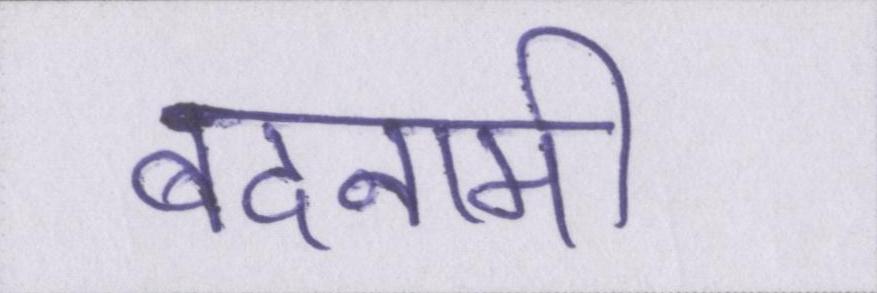 बदनामी